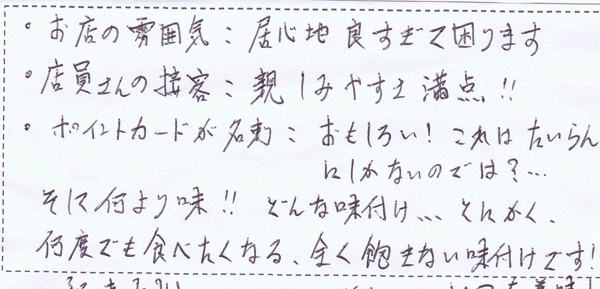 ・お店の雰囲気：居心地良すぎて困ります
・店員さんの接客：親しみやすさ満点!!
・ポイントカードが名刺：おもしろい！これはたいらん
にしかないのでは？…
そして何より味!! どんな味付け… とにかく、
何度でも食べたくなる、全く飽きない味付けです！